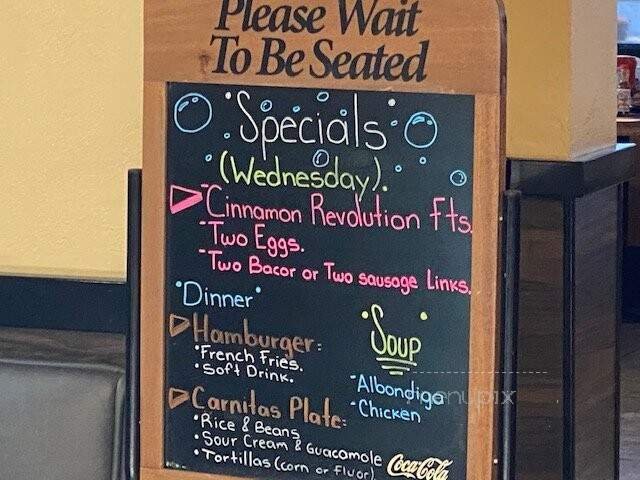 Please Wait
To Be Seated
Specials
(Wednesday).
Cinnamon Revolution Fts.
- Two Eggs.
- Two Bacor or Two sausage Links.
"Dinner"
Hamburger:
• French Fries.
• Soft Drink.
Carnitas Plate:
• Rice & Beans
• Sour Cream & Guacamole
• Tortillas (corn or fluor)
Soup
- Albondiga
- Chicken
Coca-Cola
menupix